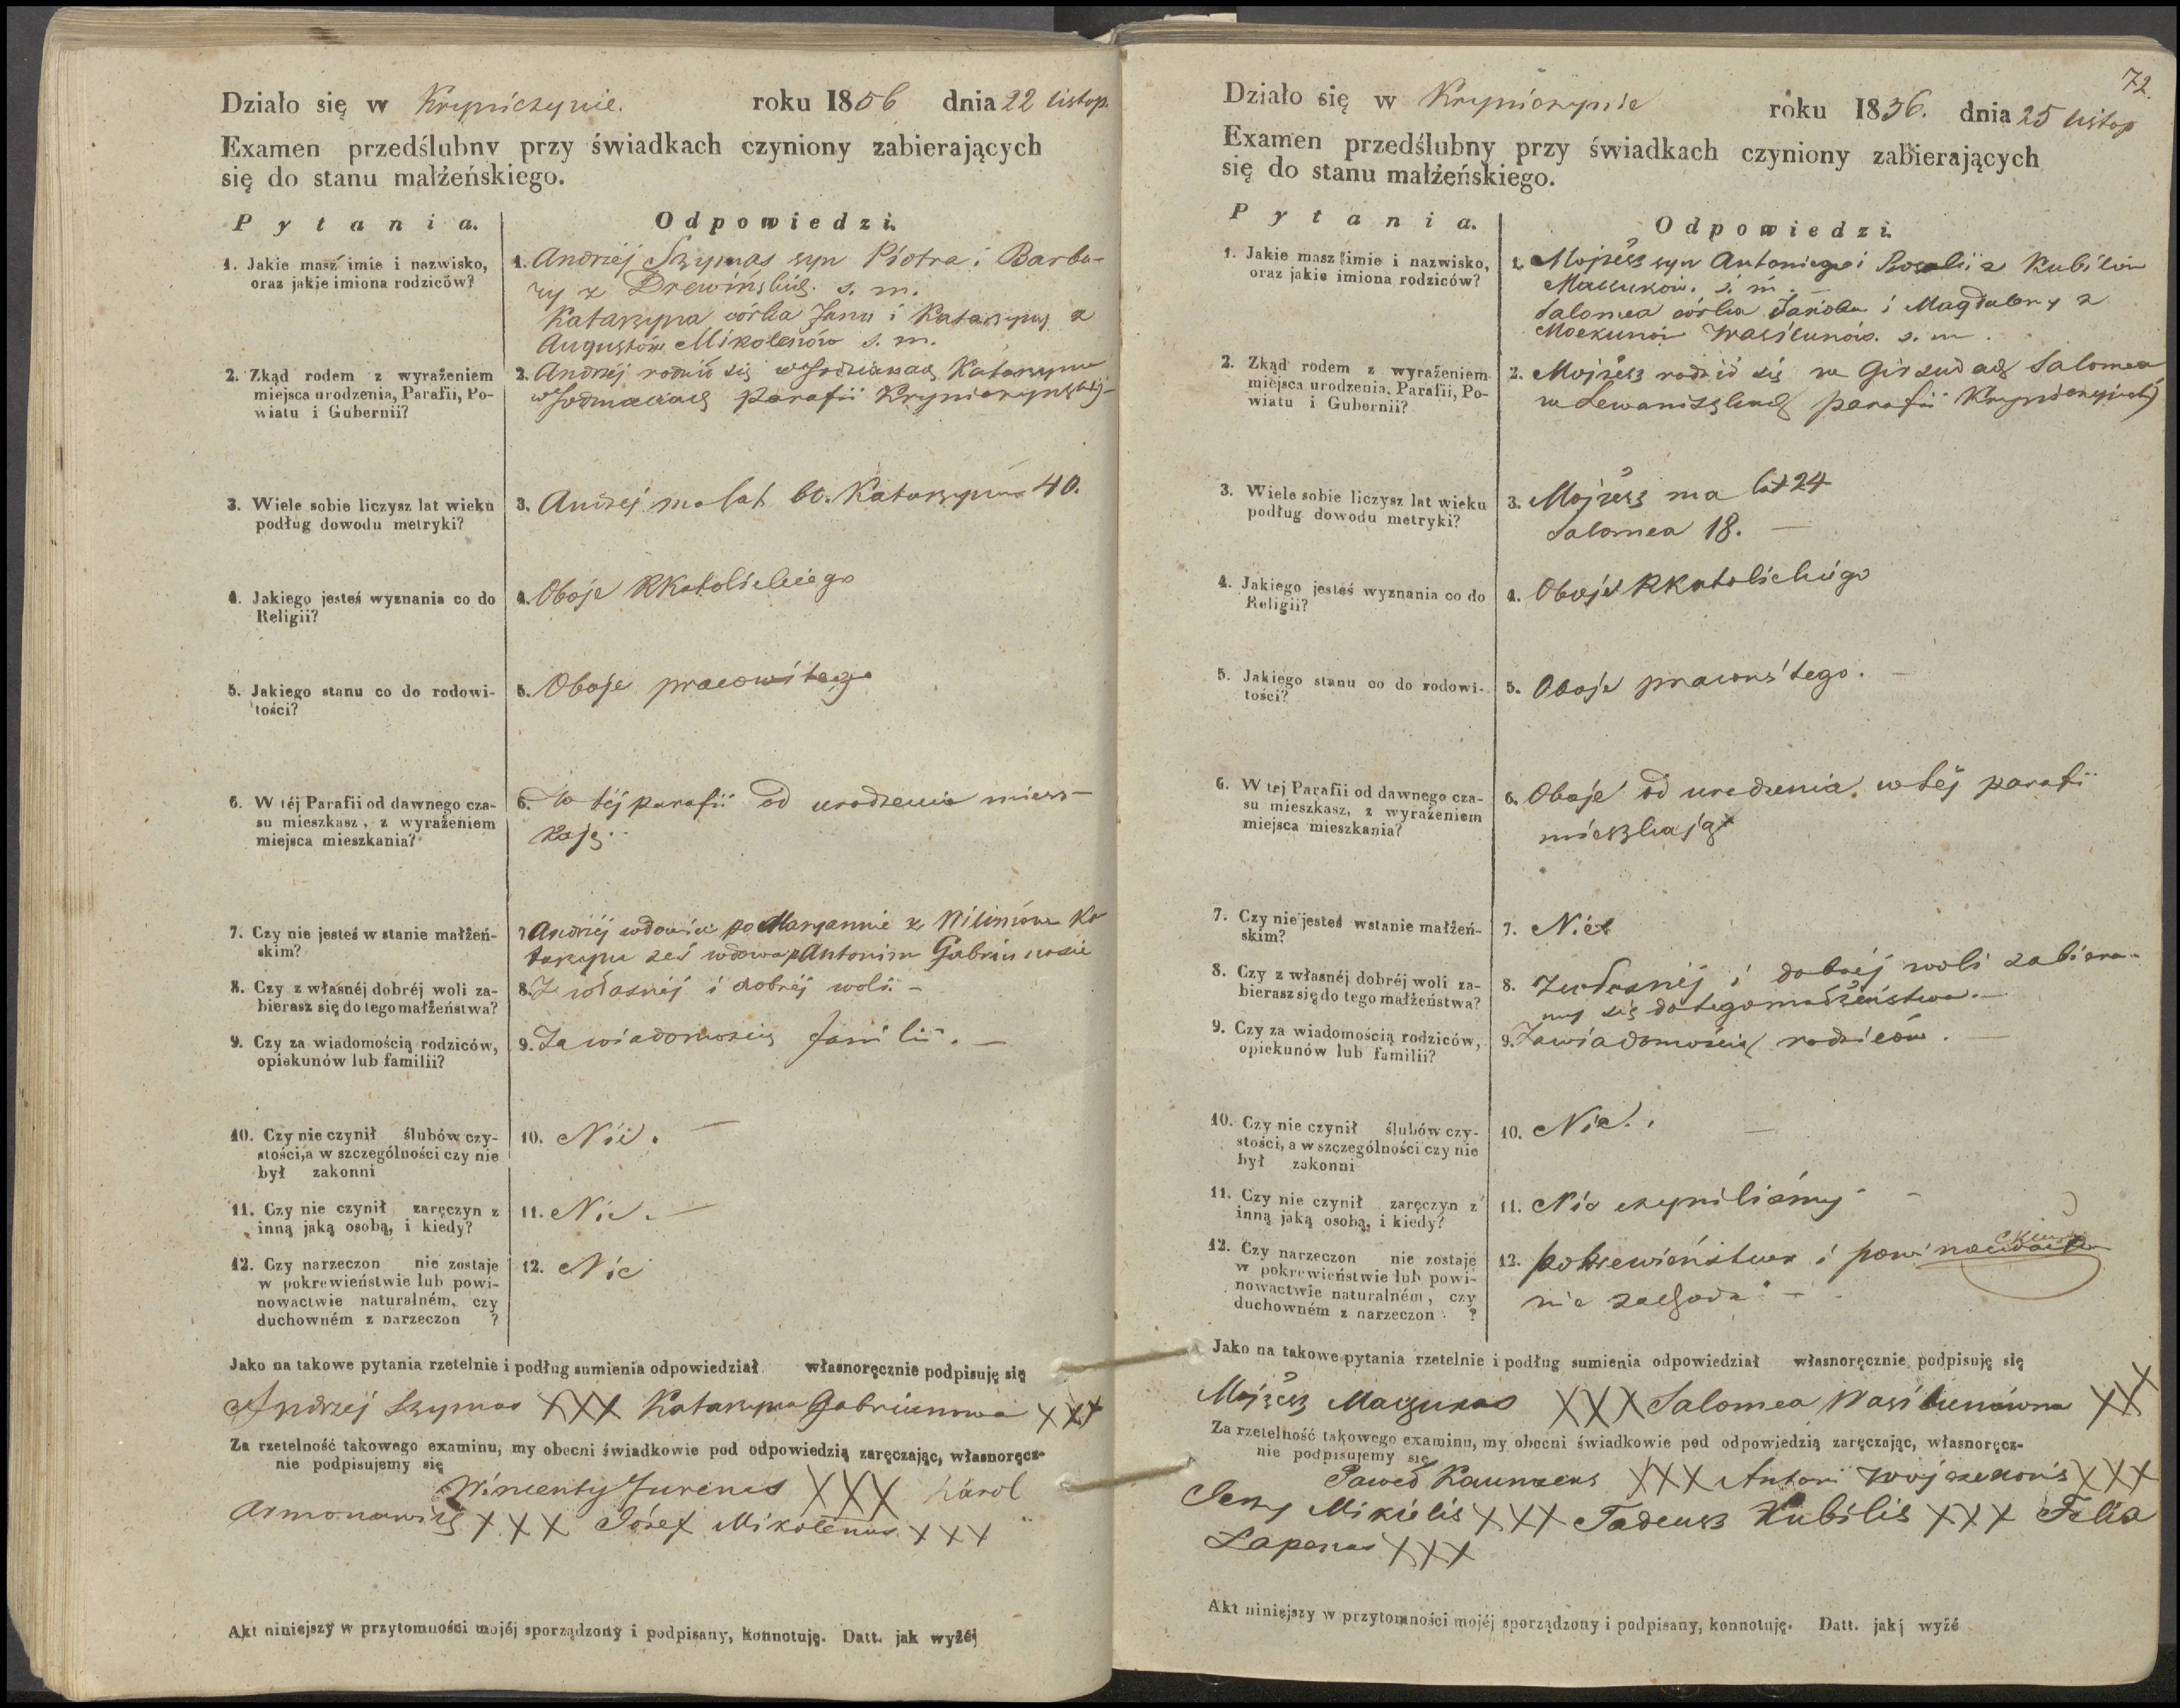 Działo się w Krypniczynie. roku 1856 dnia 22 listop.
Examen przedślubny przy świadkach czyniony zabierających
się do stanu małżeńskiego.
Pytania. Odpowiedzi.
1. Jakie masz imie i nazwisko,
oraz jakie imiona rodziców?
1. Andrzéj Szymas syn Piotra i Barba-
ry z s. m.
Katarzyna córka Jana i Katarzyny z
Augustów Mikolenów s. m.
2. Zkąd rodem z wyrażeniem
miejsca urodzenia, Parafii, Po-
wiatu i Gubernii?
2. Andrzej rodził się w Katarzyna
w parafii
3. Wiele sobie liczysz lat wieku
podług dowodu metryki?
3. Andrzej ma lat Katarzyna 40.
4. Jakiego jesteś wyznania co do
Religii?
4. Oboje RKatolickiego
5. Jakiego stanu co do rodowi-
tości?
5. Oboje pracowitego
6. W téj Parafii od dawnego cza-
su mieszkasz, z wyrażeniem
miejsca mieszkania?
6. W téj parafii od urodzenia miesz-
kają.
7. Czy nie jesteś w stanie małżeń-
skim?
7. Andrzéj wdowiec po Maryannie z Ka
tarzyna zaś wdowa po Antonim
8. Czy z własnéj dobréj woli za-
bierasz się do tego małżeństwa?
8. Z własnéj i dobréj woli. -
9. Czy za wiadomością rodziców,
opiekunów lub familii?
9. Za wiadomością familii. —
10. Czy nie czynił ślubów czy-
stości, a w szczególności czy nie
był zakonni
10. Nie. —
11. Czy nie czynił zaręczyn z
inną jaką osobą, i kiedy?
11. Nie. —
12. Czy narzeczon nie zostaje
w pokrewieństwie lub powi-
nowactwie naturalném, czy
duchowném z narzeczon ?
12. Nie
Jako na takowe pytania rzetelnie i podług sumienia odpowiedział własnoręcznie podpisuję się
Andrzej Szymas XXX Katarzyna Gabriunowa XXX
Za rzetelność takowego examinu, my obecni świadkowie pod odpowiedzią zaręczając, własnoręcz-
nie podpisujemy się
Wincenty Jurenas XXX Karol
Armonawicz XXX Józef Mikolenas XXX
Akt niniejszy w przytomności mojéj sporządzony i podpisany, konnotuję. Datt. jak wyżéj
72.
Działo się w Krypniczynie roku 1856. dnia 25 listop
Examen przedślubny przy świadkach czyniony zabierających
się do stanu małżeńskiego.
Pytania. Odpowiedzi.
1. Jakie masz imie i nazwisko,
oraz jakie imiona rodziców?
1. Mojżesz syn Antoniego i Rozalii z Kubilów
s. m. —
Salomea córka Jakóba i Magdaleny z
Wasilunów. s. m.
2. Zkąd rodem z wyrażeniem
miejsca urodzenia, Parafii, Po-
wiatu i Gubernii?
2. Mojżesz rodził się w Salomea
w parafii
3. Wiele sobie liczysz lat wieku
podług dowodu metryki?
3. Mojżesz ma lat 24
Salomea 18. —
4. Jakiego jesteś wyznania co do
Religii?
4. Oboje RKatolickiego
5. Jakiego stanu co do rodowi-
tości?
5. Oboje pracowitego. —
6. W tej Parafii od dawnego cza-
su mieszkasz, z wyrażeniem
miejsca mieszkania?
6. Oboje od urodzenia w téj parafii
mieszkają
7. Czy nie jesteś wstanie małżeń-
skim?
7. Nie
8. Czy z własnéj dobréj woli za-
bierasz się do tego małżeństwa?
8. Z własnéj i dobréj woli zabiera-
my się do tego małżeństwa. —
9. Czy za wiadomością rodziców,
opiekunów lub familii?
9. Za wiadomością rodziców. —
10. Czy nie czynił ślubów czy-
stości, a w szczególności czy nie
był zakonni
10. Nie. —
11. Czy nie czynił zaręczyn z
inną jaką osobą, i kiedy?
11. Nie czyniliśmy -
12. Czy narzeczon nie zostaje
w pokrewieństwie lub powi-
nowactwie naturalném, czy
duchowném z narzeczon ?
12. pokrewieństwo i
nie zachodzi. —
Jako na takowe pytania rzetelnie i podług sumienia odpowiedział własnoręcznie podpisuję się
Mojżesz XXX Salomea Wasilunówna XXX
Za rzetelność takowego examinu, my obecni świadkowie pod odpowiedzią zaręczając, własnoręcz-
nie podpisujemy się
Paweł XXX Antoni XXX
Jerzy Mikielis XXX Tadeusz Kubilis XXX Felix
Łapenas XXX
Akt niniejszy w przytomności mojéj sporządzony i podpisany, konnotuję. Datt. jak wyżé